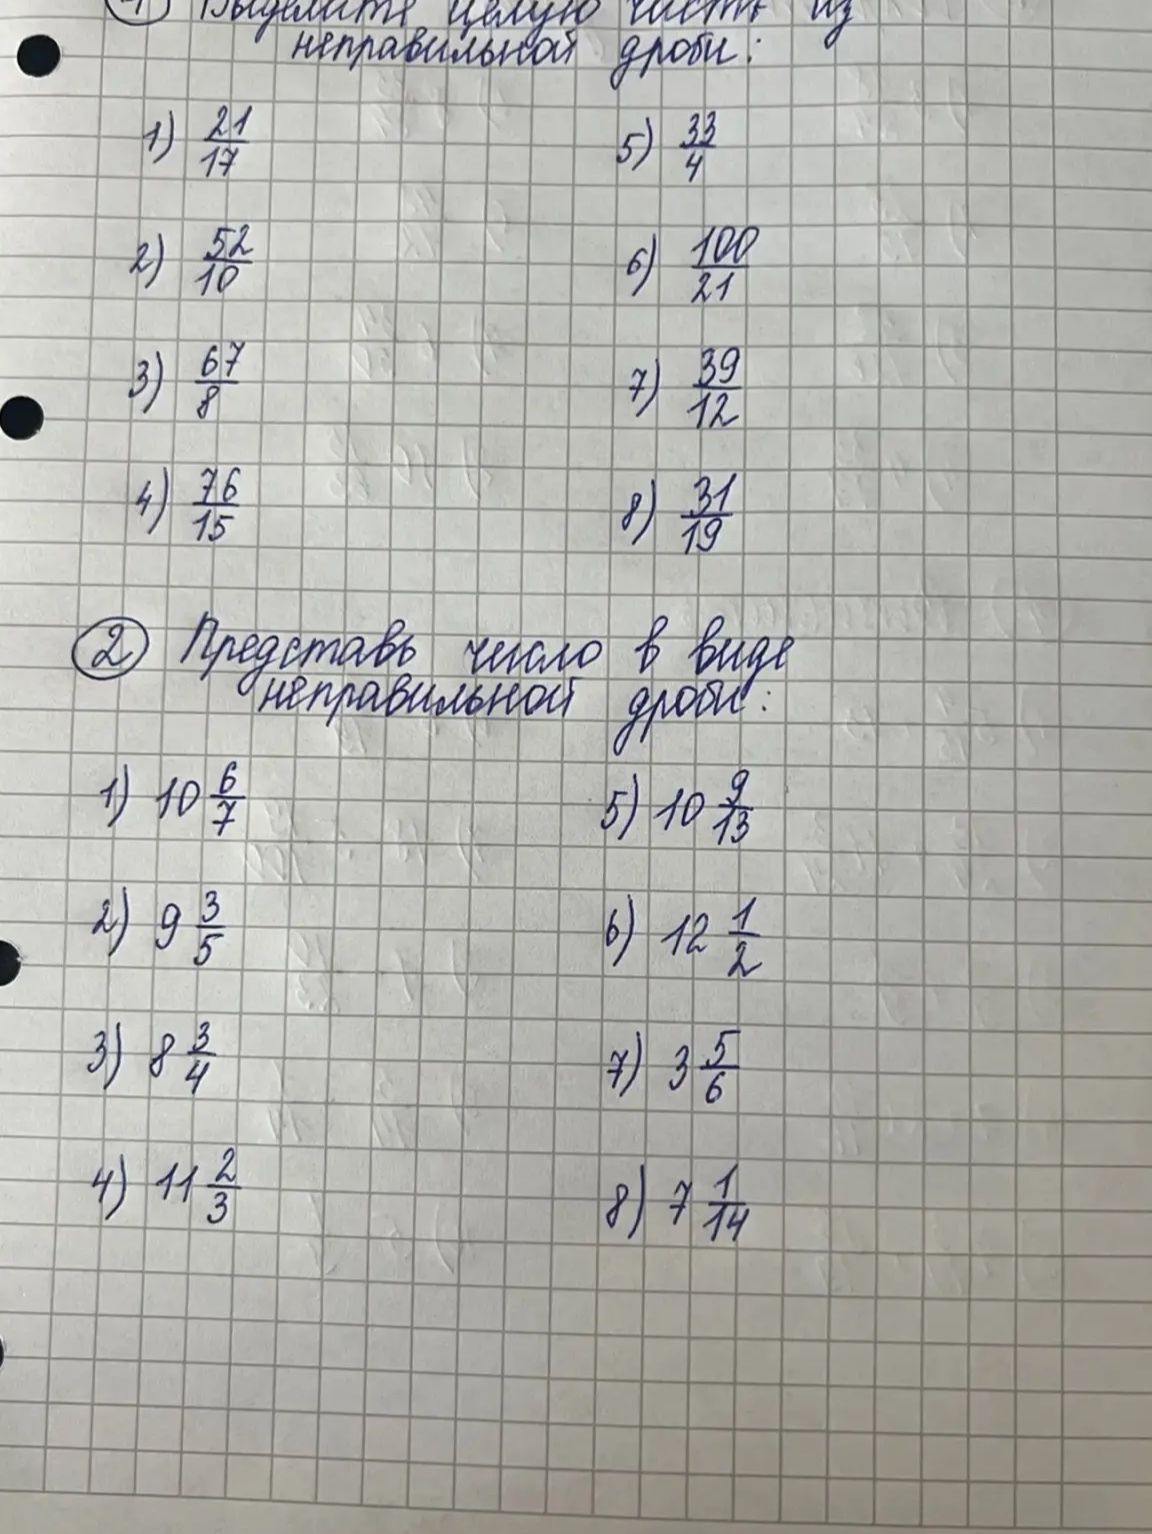 1 Выделите целую часть из
неправильной дроби:
1) 21/17
5) 33/4
2) 52/10
6) 100/21
3) 67/8
7) 39/12
4) 76/15
8) 31/19
2 Представь число в виде
неправильной дроби:
1) 10 6/7
5) 10 9/13
2) 9 3/5
6) 12 1/2
3) 8 3/4
7) 3 5/6
4) 11 2/3
8) 7 1/14